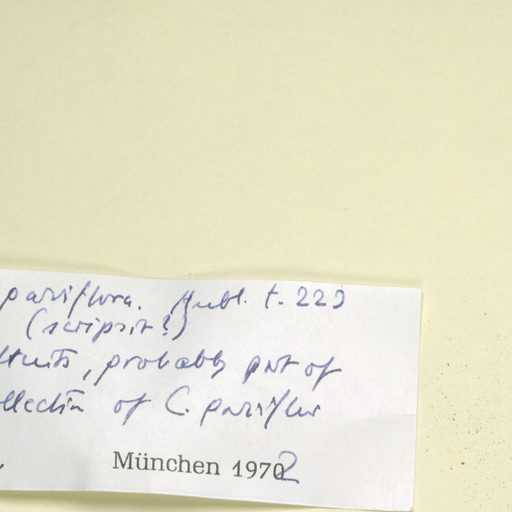 parviflora. Aubl. t. 223
(scripsit?)
fruits, probably part of
llection of C. parviflor
, München 1970 2